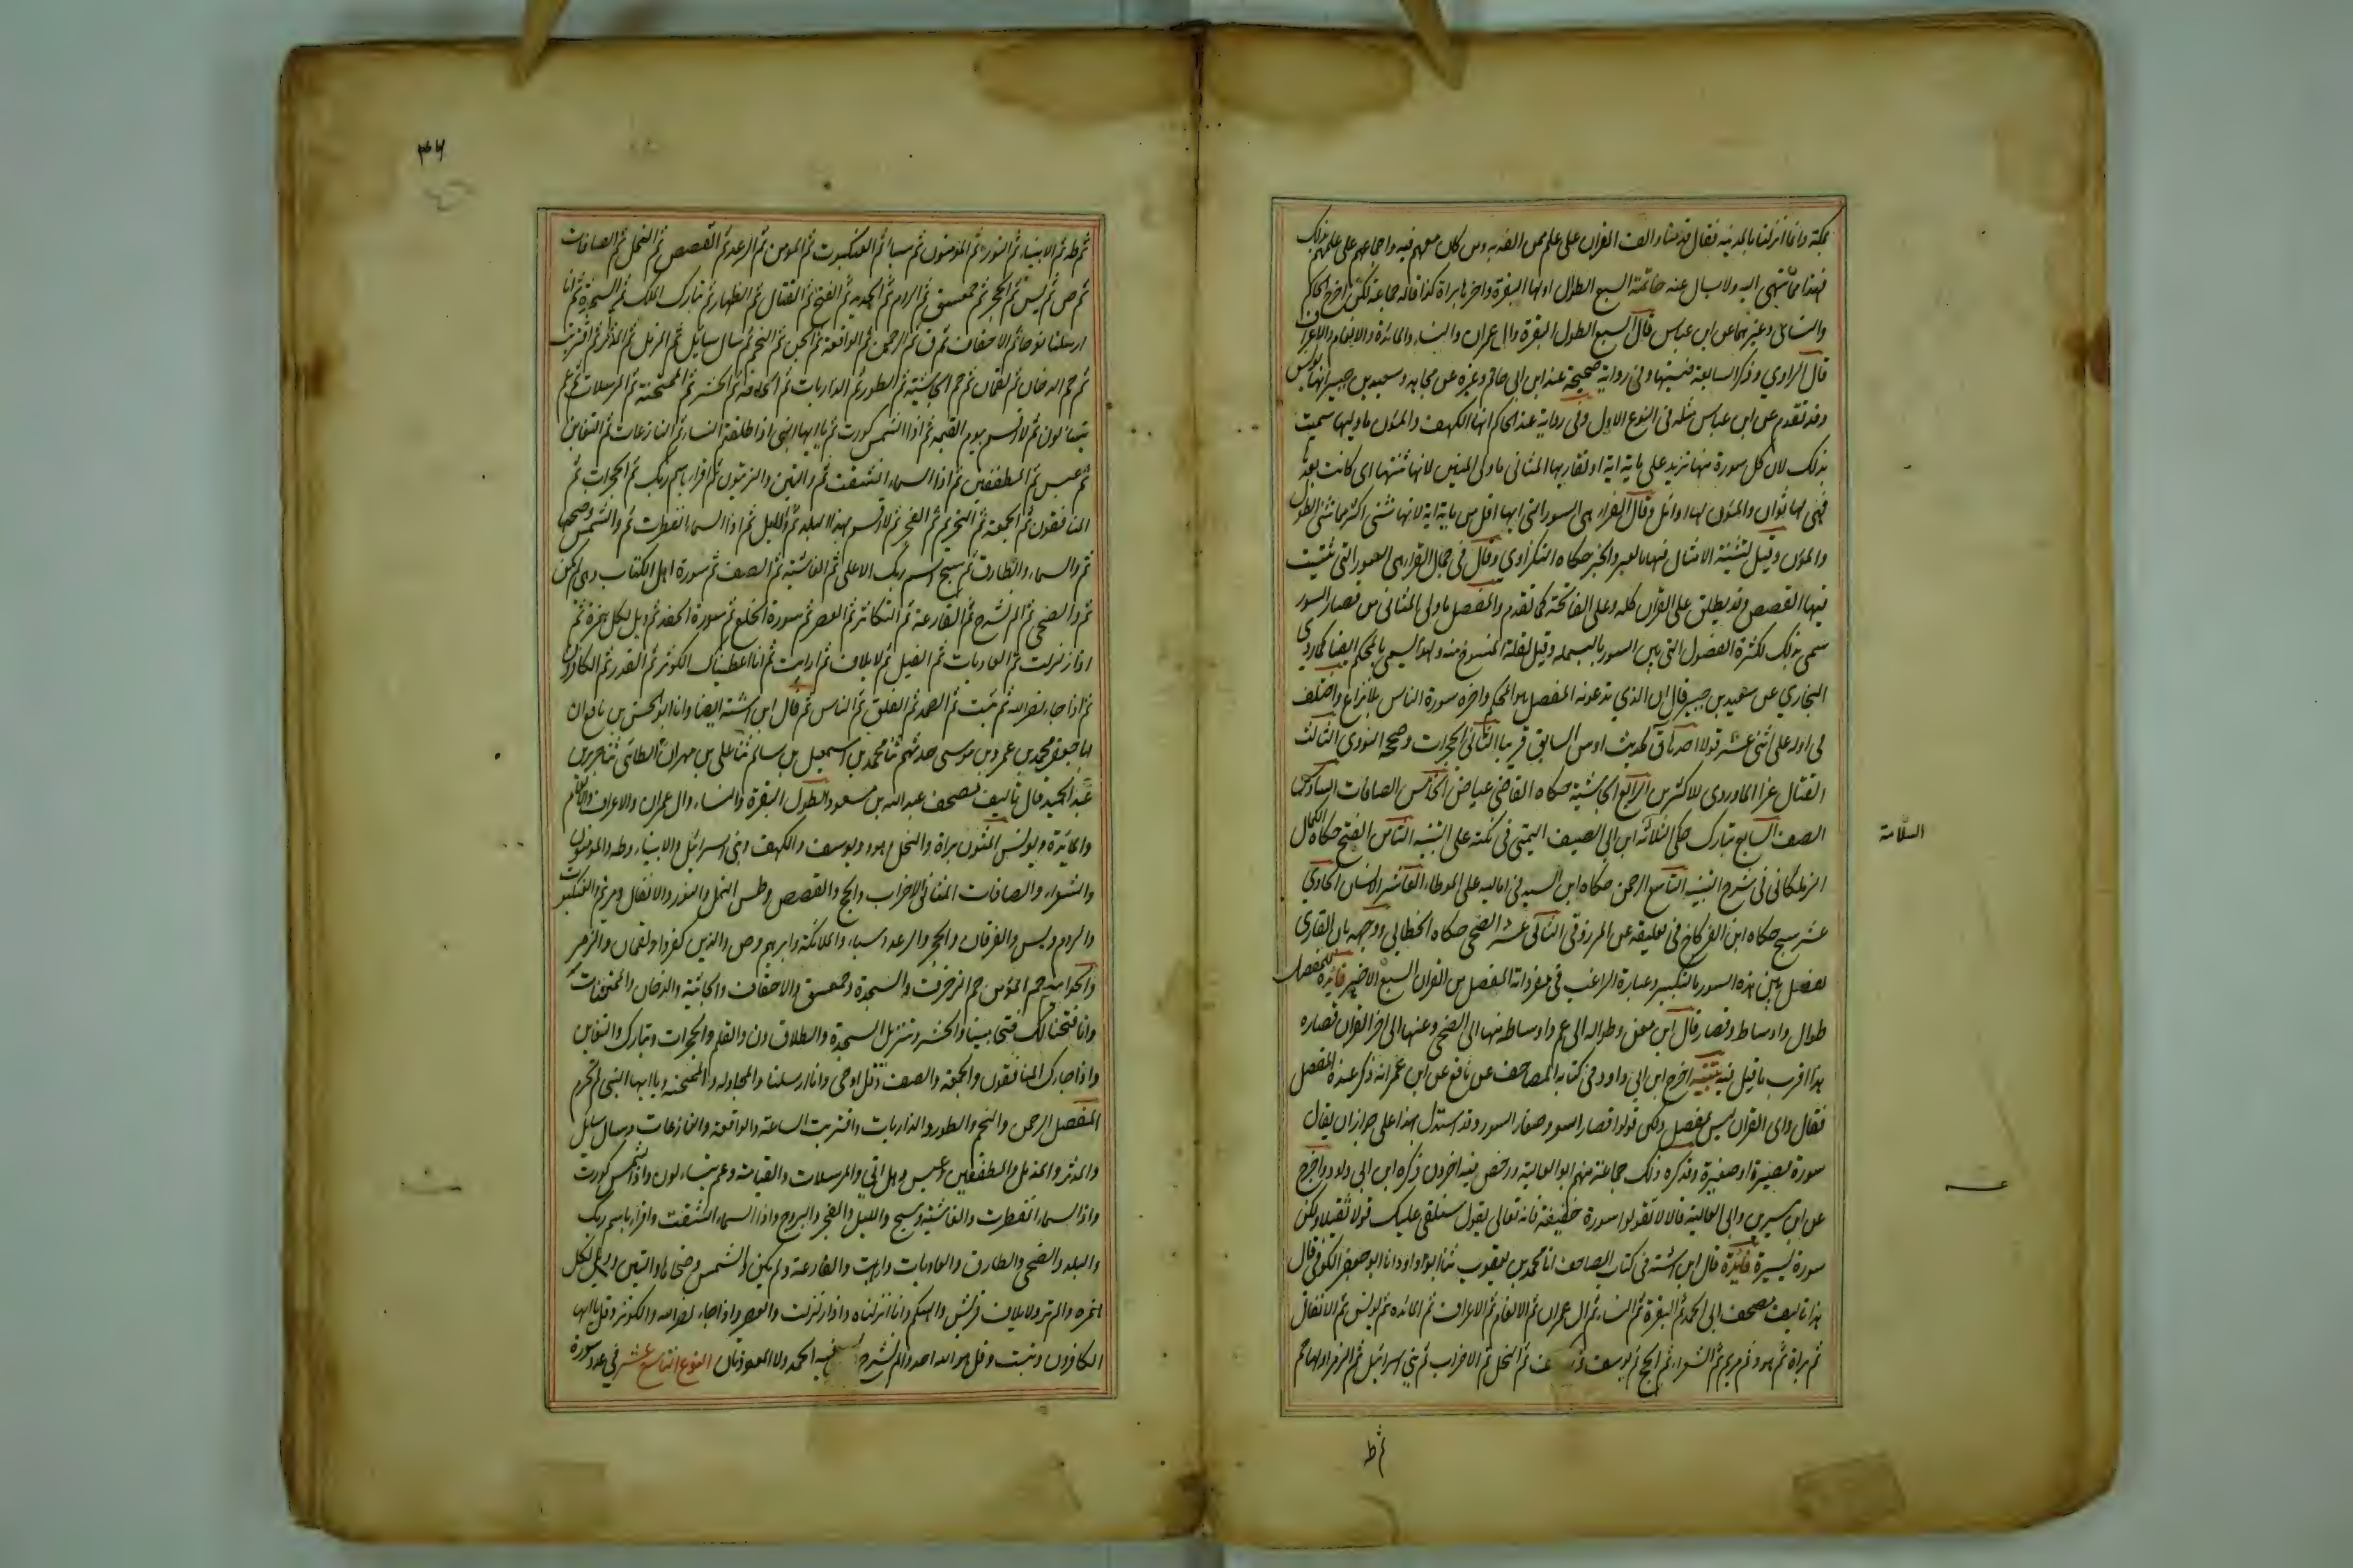 بمكة وانما انزلتا بالمدينة فقال قدمتا والف القران على علم ممن الفه به ومن كان معهم فيه واجماعهم على علمهم بذلك
فهذا مما ينتهى اليه ولا يسال عنه خاتمة السبع الطوال اولها البقرة واخرها براة كذا قاله جماعة لكن اخرج الحاكم
والنسائى وغيرهما عن ابن عباس قال السبع الطول البقرة وال عمران والنساء والمائدة والانعام والاعراف
قال الراوي وذكر السابعة فنسيتها وفى رواية صحيحة عند ابن ابى حاتم وغيره عن مجاهد وسعيد بن جبير انها يونس
وقد تقدم عن ابن عباس مثله فى النوع الاول وفى رواية عند الحاكم انها الكهف والمئون ما وليها سميت
بذلك لان كل سورة منها تزيد على ماية اية او تقاربها المثانى ما ولى المئين لانها ثنتها اى كانت بعدها
فهى لها ثوان والمئون لها اوائل وقال الفراء هى السور التى ايها اقل من ماية اية لانها تثنى اكثر مما تثنى الطول
والمئون وقيل لتثنية الامثال فيها بالعبر والخبر حكاه النكزاوي وقال فى جمال القراء هى السور التى ثنيت
فيها القصص وقد يطلق على القران كله وعلى الفاتحة كما تقدم والمفصل ما ولى المثانى من قصار السور
سمى بذلك لكثرة الفصول التى بين السور بالبسملة وقيل لقلة المنسوخ منه ولهذا يسمى بالمحكم ايضا كما روي
البخاري عن سعيد بن جبير قال ان الذي تدعونه المفصل هو المحكم واخره سورة الناس بلا نزاع واختلف
فى اوله على اثنى عشر قولا احدها ق لحديث اوس السابق قريبا الثانى الحجرات وصححه النووي الثالث
القتال عزاه الماوردي للاكثرين الرابع الجاثية حكاه القاضى عياض الخامس الصافات السادس
الصف السابع تبارك حكى الثلاثة ابن ابى الصيف اليمنى فى نكته على التنبيه الثامن الفتح حكاه الكمال
الزملكانى فى شرح التنبيه التاسع الرحمن حكاه ابن السيد فى اماليه على الموطاء العاشر الانسان الحادي
عشر سبح حكاه ابن الفركاح فى تعليقه عن المرزوقى الثانى عشر الضحى حكاه الخطابى ووجهه بان القاري
يفصل بين هذه السور بالتكبير وعبارة الراغب فى مفرداته المفصل من القران السبع الاخير فائدة للمفصل
طوال واوساط وقصار قال ابن معن وطواله الى عم واوساطه منها الى الضحى وعنها الى اخر القران قصاره
هذا اقرب ما قيل فيه تنبيه اخرج ابن ابى داود فى كتابه المصاحف عن نافع عن ابن عمر انه ذكر عنده المفصل
فقال واى القران ليس بمفصل ولكن قولوا قصار السور وصغار السور وقد استدل بهذا على جواز ان يقال
سورة قصيرة او صغيرة وقد كره ذلك جماعة منهم ابو العالية ورخص فيه اخرون ذكره ابن ابى داود واخرج
عن ابن سيرين وابى العالية قالا لا تقولوا سورة خفيفة فانه تعالى يقول سنلقى عليك قولا ثقيلا ولكن
سورة يسيرة فائدة قال ابن اشته فى كتاب المصاحف انا محمد بن يعقوب ثنا ابو داود انا ابو جعفر الكوفى قال
هذا تاليف مصحف ابى الحمد ثم البقرة ثم النساء ثم ال عمران ثم الانعام ثم الاعراف ثم المائده ثم يونس ثم الانفال
ثم براة ثم هود ثم مريم ثم الشعراء ثم الحج ثم يوسف ثم الكهف ثم النحل ثم الاحزاب ثم بنى اسرائيل ثم الزمر اولها حم
ثم طه
السلامة
ثم طه ثم الانبياء ثم النور ثم المؤمنون ثم سبا ثم العنكبوت ثم المؤمن ثم الرعد ثم القصص ثم النمل ثم الصافات
ثم ص ثم يس ثم الحجر ثم حمعسق ثم الروم ثم الحديد ثم الفتح ثم القتال ثم الظهار ثم تبارك الملك ثم السجدة ثم انا
ارسلنا نوحا ثم الاحقاف ثم ق ثم الرحمن ثم الواقعة ثم الجن ثم النجم ثم سال سايل ثم المزمل ثم المدثر ثم اقتربت
ثم حم الدخان ثم لقمان ثم حم الجاثية ثم الطور ثم الذاريات ثم ن ثم الحاقة ثم الحشر ثم الممتحنة ثم المرسلات ثم عم
يتسالون ثم لا اقسم بيوم القيمة ثم اذا الشمس كورت ثم يا ايها النبى اذا طلقتم النساء ثم النازعات ثم التغابن
ثم عبس ثم المطففين ثم اذا السماء انشقت ثم والتين والزيتون ثم اقرا باسم ربك ثم الحجرات ثم
المنافقون ثم الجمعة ثم التحريم ثم الفجر ثم لا اقسم بهذا البلد ثم والليل ثم اذا السماء انفطرت ثم والشمس وضحها
ثم والسماء والطارق ثم سبح اسم ربك الاعلى ثم الغاشية ثم الصف ثم سورة اهل الكتاب وهى لم يكن
ثم والضحى ثم الم نشرح ثم القارعة ثم التكاثر ثم العصر ثم سورة الخلع ثم سورة الحفد ثم ويل لكل همزة ثم
اذا زلزلت ثم العاديات ثم الفيل ثم لايلاف ثم ارايت ثم انا اعطيناك الكوثر ثم القدر ثم الكافرون
ثم اذا جاء نصر الله ثم تبت ثم الصمد ثم الفلق ثم الناس ثم قال ابن اشته ايضا وانا ابو الحسن بن نافع ان
ابا جعفر محمد بن عمرو بن موسى حدثهم ثنا محمد بن اسمعيل بن سالم ثنا على بن مهران الطائى ثنا جرير بن
عبد الحميد قال تاليف مصحف عبد الله بن مسعود الطول البقرة والنساء وال عمران والاعراف والانعام
والمائدة ويونس المئون براة والنحل وهود ويوسف والكهف وبنى اسرائيل والانبياء وطه والمؤمنون
والشعراء والصافات المثانى الاحزاب والحج والقصص وطس النمل والنور والانفال ومريم والعنكبوت
والروم ويس والفرقان والحجر والرعد وسبا والملائكة وابرهيم وص والذين كفروا ولقمان والزمر
والحواميم حم المؤمن حم الزخرف والسجدة وحمعسق والاحقاف والجاثية والدخان والممتحنات
وانا فتحنا لك فتحا مبينا والحشر وتنزيل السجدة والطلاق ون والقلم والحجرات وتبارك والتغابن
واذا جاءك المنافقون والجمعة والصف وقل اوحى وانا ارسلنا والمجادلة والممتحنة ويا ايها النبى لم تحرم
المفصل الرحمن والنجم والطور والذاريات واقتربت الساعة والواقعة والنازعات وسال سايل
والمدثر والمزمل والمطففين وعبس وهل اتى والمرسلات والقيامة وعم يتساءلون واذا الشمس كورت
واذا السماء انفطرت والغاشية وسبح والليل والفجر والبروج واذا السماء انشقت واقرا باسم ربك
والبلد والضحى والطارق والعاديات وارايت والقارعة ولم يكن والشمس وضحاها والتين وويل لكل
همزه والم تر ولايلاف قريش والهيكم وانا انزلناه واذا زلزلت والعصر واذا جاء نصر الله والكوثر وقل يا ايها
الكافرون وتبت وقل هو الله احد والم نشرح وليس فيه الحمد ولا المعوذتان النوع التاسع عشر فى عدد سورة